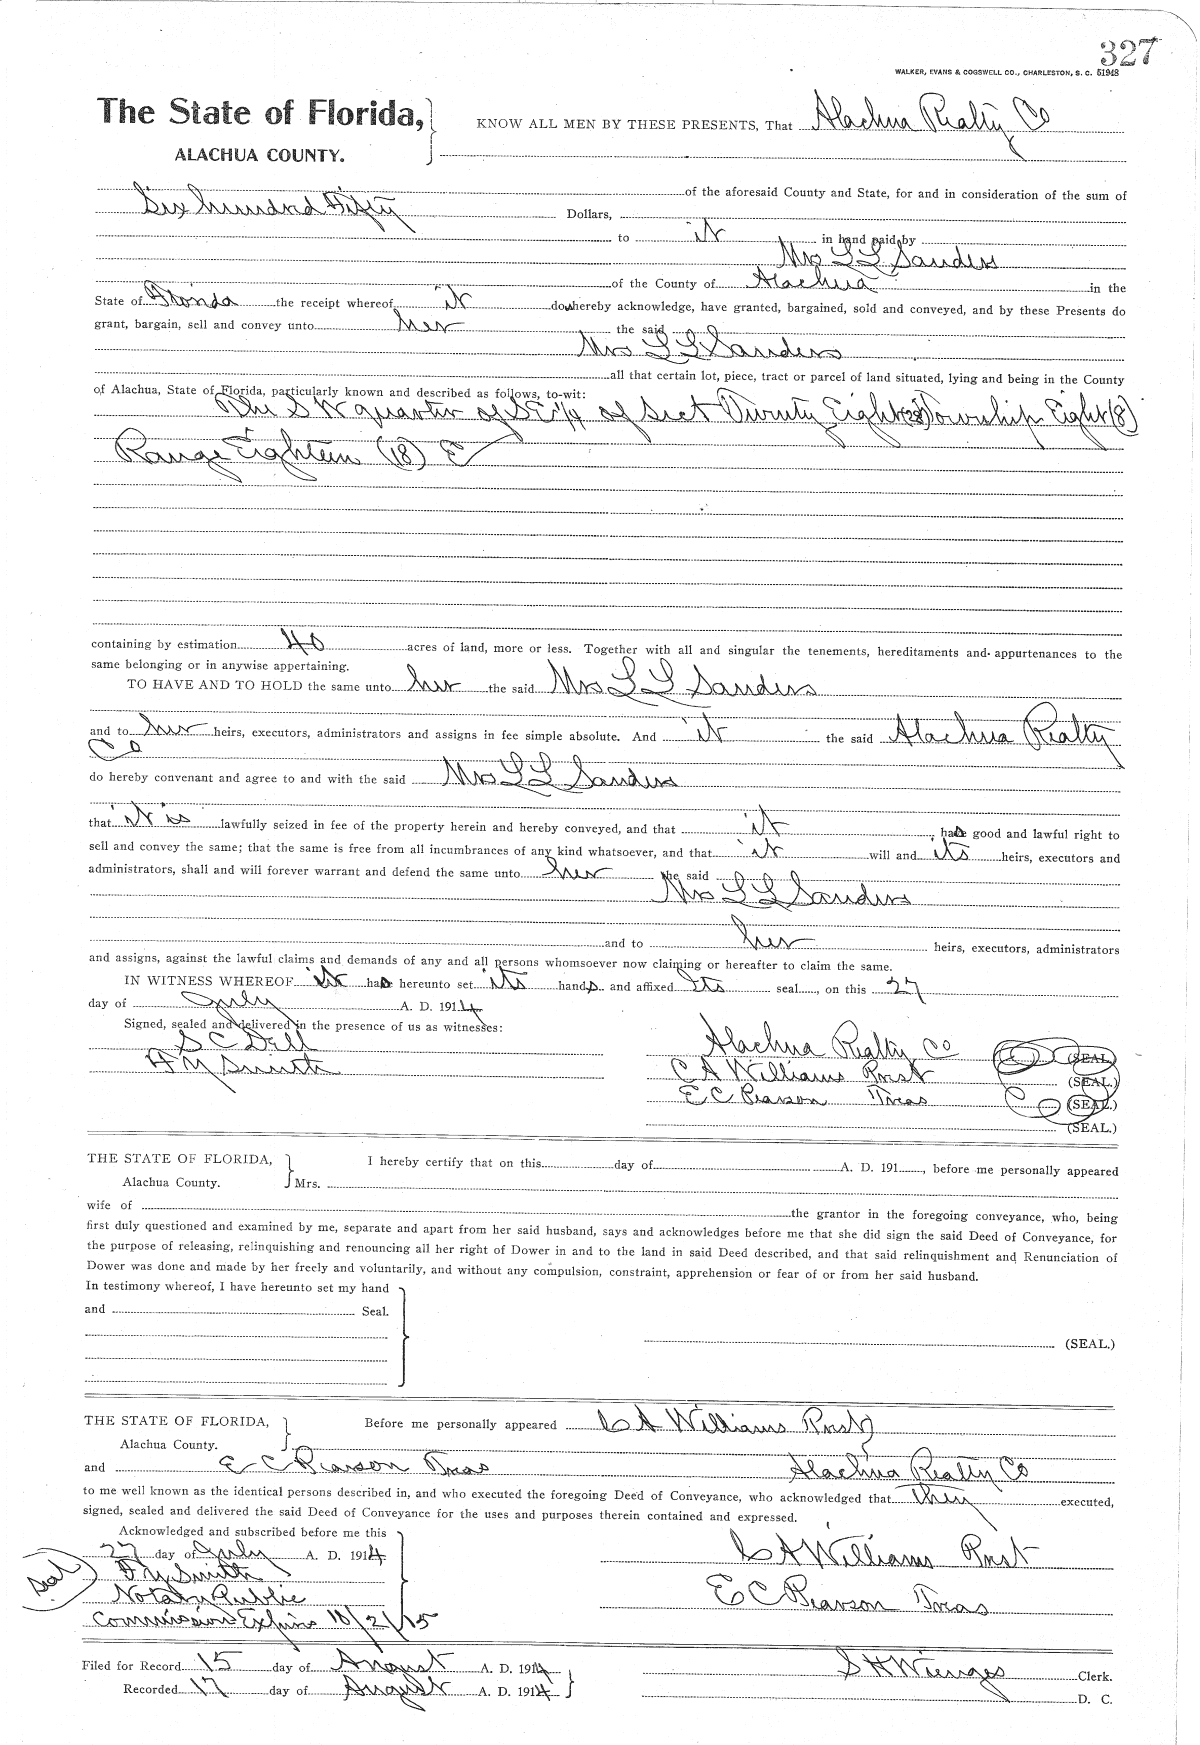 327
WALKER, EVANS & COGSWELL CO., CHARLESTON, S. C. 51948
The State of Florida,
ALACHUA COUNTY.
KNOW ALL MEN BY THESE PRESENTS, That Alachua Realty Co
of the aforesaid County and State, for and in consideration of the sum of
Six hundred Fifty Dollars,
to it in hand paid by
Mrs L L Sanders
of the County of Alachua in the
State of Florida the receipt whereof it do hereby acknowledge, have granted, bargained, sold and conveyed, and by these Presents do
grant, bargain, sell and convey unto her the said
Mrs L L Sanders
all that certain lot, piece, tract or parcel of land situated, lying and being in the County
of Alachua, State of Florida, particularly known and described as follows, to-wit:
The S W quarter of S E 1/4 of Sect Twenty Eight (28) Township Eight (8)
Range Eighteen (18) E
containing by estimation 40 acres of land, more or less. Together with all and singular the tenements, hereditaments and appurtenances to the
same belonging or in anywise appertaining.
TO HAVE AND TO HOLD the same unto her the said Mrs L L Sanders
and to her heirs, executors, administrators and assigns in fee simple absolute. And it the said Alachua Realty
Co
do hereby convenant and agree to and with the said Mrs L L Sanders
that it is lawfully seized in fee of the property herein and hereby conveyed, and that it has good and lawful right to
sell and convey the same; that the same is free from all incumbrances of any kind whatsoever, and that it will and its heirs, executors and
administrators, shall and will forever warrant and defend the same unto her the said
Mrs L L Sanders
and to her heirs, executors, administrators
and assigns, against the lawful claims and demands of any and all persons whomsoever now claiming or hereafter to claim the same.
IN WITNESS WHEREOF it has hereunto set its hands and affixed Its seal, on this 27
day of July A. D. 1914
Signed, sealed and delivered in the presence of us as witnesses:
S C Dell
Alachua Realty Co (SEAL)
C A Williams Prest (SEAL.)
E C Pearson Treas (SEAL.)
(SEAL.)
THE STATE OF FLORIDA,
Alachua County.
I hereby certify that on this day of A. D. 191 , before me personally appeared
Mrs.
wife of the grantor in the foregoing conveyance, who, being
first duly questioned and examined by me, separate and apart from her said husband, says and acknowledges before me that she did sign the said Deed of Conveyance, for
the purpose of releasing, relinquishing and renouncing all her right of Dower in and to the land in said Deed described, and that said relinquishment and Renunciation of
Dower was done and made by her freely and voluntarily, and without any compulsion, constraint, apprehension or fear of or from her said husband.
In testimony whereof, I have hereunto set my hand
and Seal.
(SEAL.)
THE STATE OF FLORIDA,
Alachua County.
Before me personally appeared C A Williams Prest
and E C Pearson Treas Alachua Realty Co
to me well known as the identical persons described in, and who executed the foregoing Deed of Conveyance, who acknowledged that they executed,
signed, sealed and delivered the said Deed of Conveyance for the uses and purposes therein contained and expressed.
Acknowledged and subscribed before me this
27 day of July A. D. 1914
C A Williams Prest
Smith
Seal
E C Pearson Treas
Notary Public
Commission Expires 10/21/15
Filed for Record 15 day of August A. D. 1914
S H Wienges Clerk.
Recorded 17 day of August A. D. 1914
D. C.